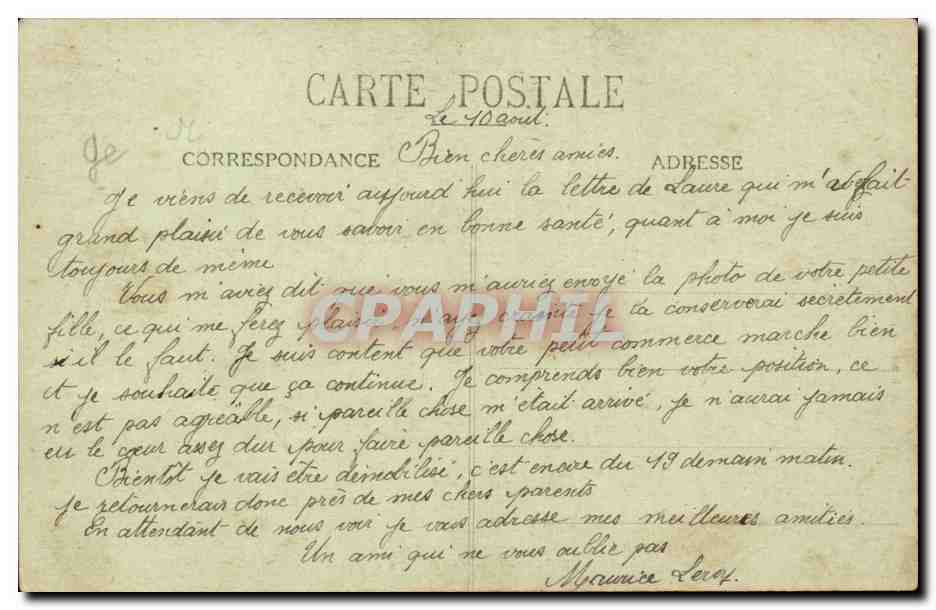 CARTE POSTALE
Le 10 aout.
CORRESPONDANCE Bien chères amies. ADRESSE
Je
Je viens de recevoir aujourd hui la lettre de Laure qui m'a fait
grand plaisir de vous savoir en bonne santé, quant à moi je suis
toujours de même
Vous m'aviez dit que vous m'auriez envoyé la photo de votre petite
fille, ce qui me ferez plaisir, n'ayez crainte je la conserverai secrètement
s'il le faut. Je suis content que votre petit commerce marche bien
et je souhaite que ça continue. Je comprends bien votre position, ce
n'est pas agréable, si pareille chose m'était arrivé, je n'aurai jamais
eu le cœur assez dur pour faire pareille chose.
Bientôt je vais être démobilisé, c'est encore du 19 demain matin.
je retournerais donc près de mes chers parents
En attendant de nous voir je vous adresse mes meilleures amitiés.
Un ami qui ne vous oublie pas
Maurice Leroy.
CPAPHIL